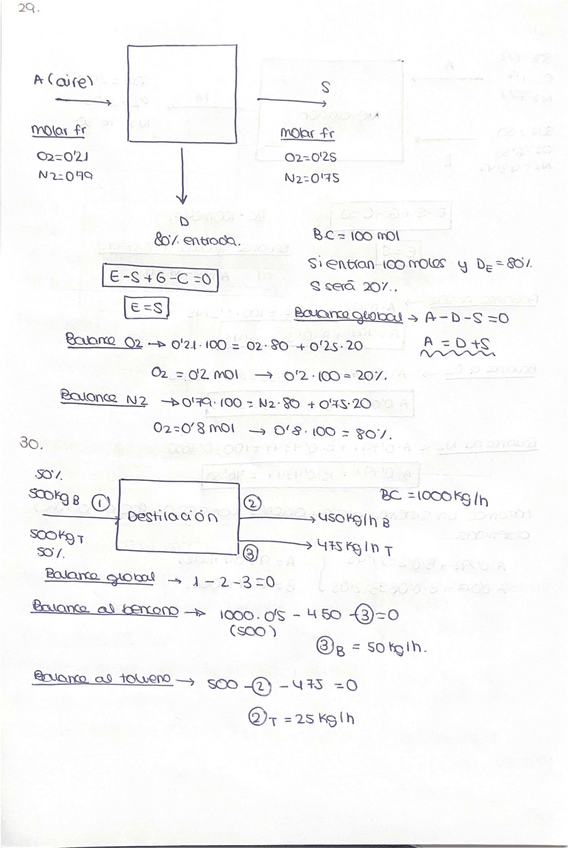 29.
A (aire)
S
molar fr
O2=0'21
N2=0'79
molar fr
O2=0'25
N2=0'75
D
80% entrada.
BC = 100 mol
Si entran 100 moles y DE = 80%.
S será 20%.
E-S+G-C=0
E=S
Balance global → A-D-S=0
A = D+S
Balance O2 → 0'21·100 = O2·80 + 0'25·20
O2 = 0'2 mol → 0'2·100 = 20%.
Balance N2 → 0'79·100 = N2·80 + 0'75·20
O2=0'8 mol → 0'8·100 = 80%.
30.
50%
500kg B
①
500kg T
50%
Destilación
②
③
450kg/h B
475kg/h T
BC = 1000 kg/h
Balance global → 1-2-3=0
Balance al benceno → 1000·0'5 - 450 - ③ = 0
(500)
③B = 50kg/h.
Balance al tolueno → 500 - ② - 475 = 0
②T = 25 kg/h